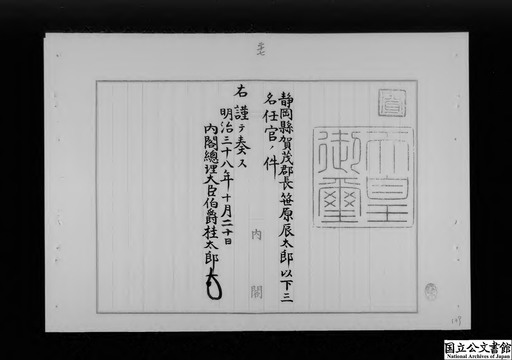 静岡縣賀茂郡長笹原辰太郎以下三
名任官ノ件
右謹テ奏ス
明治三十八年十月二十日
内閣總理大臣伯爵桂太郎
内閣
天皇御璽
国立公文書館
National Archives of Japan